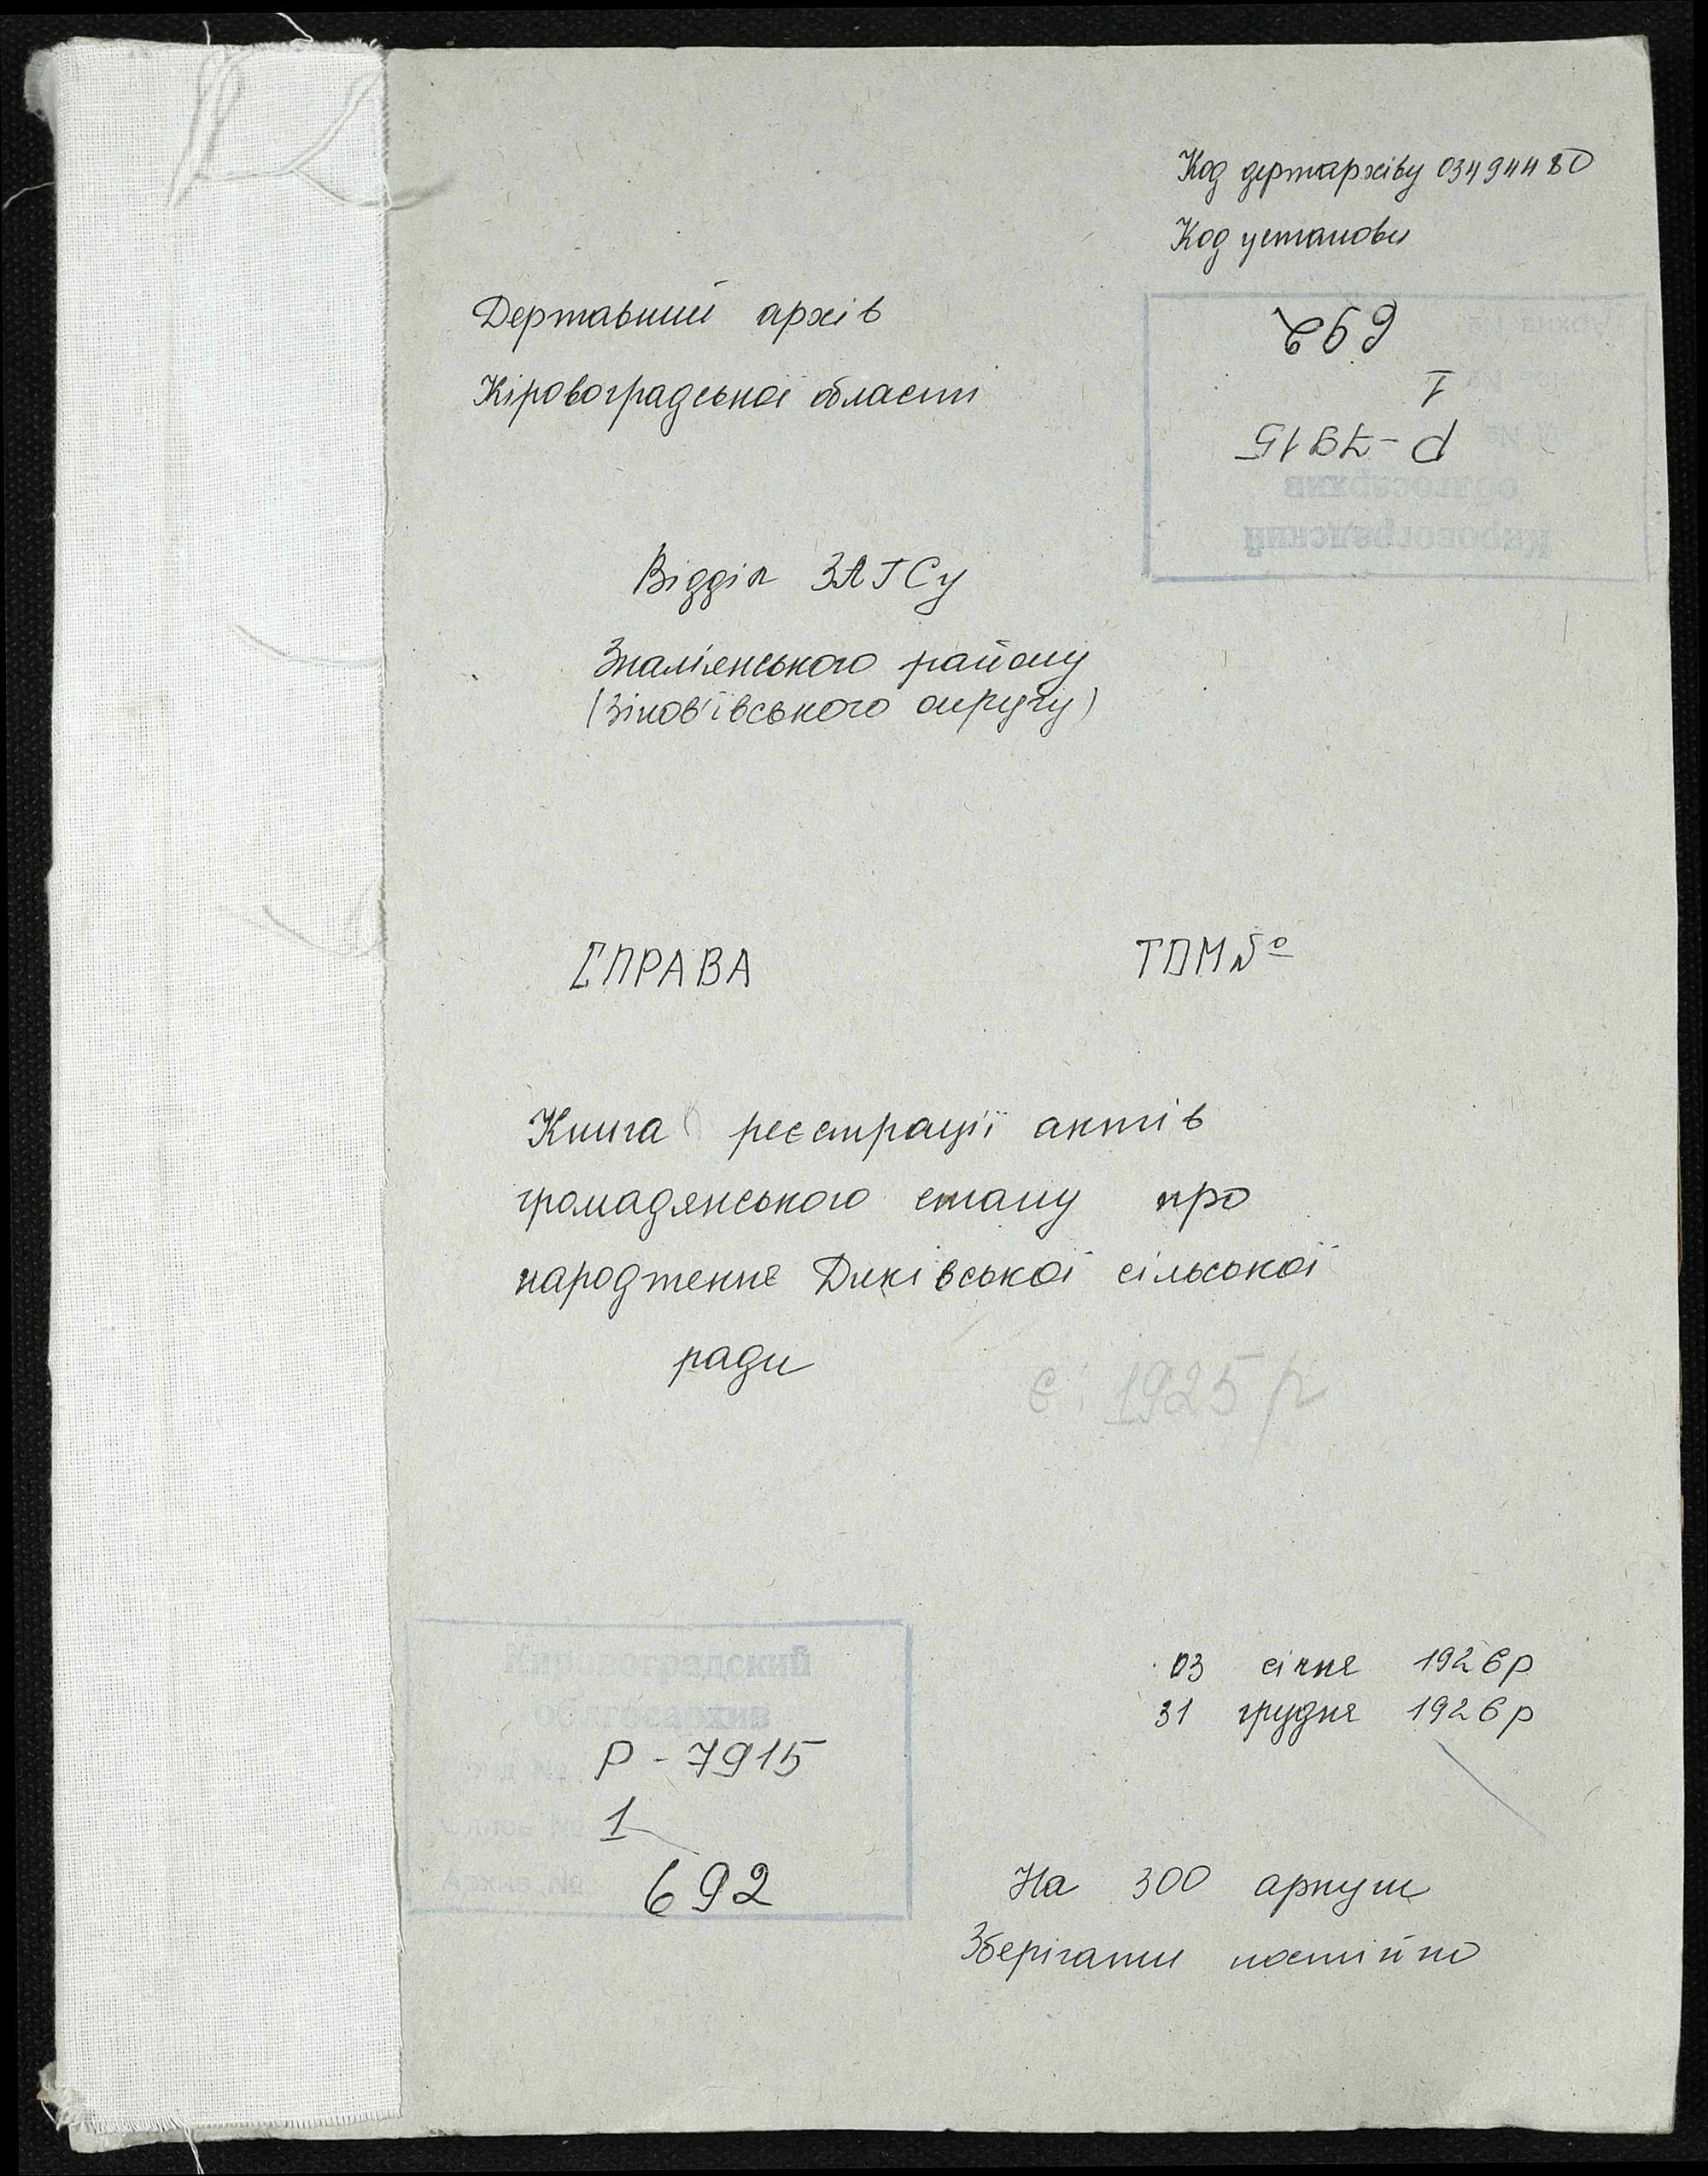 Код держархіву 03494480
Код установи
Державний архів
Кіровоградської області
692
1
Р-7915
облгосархив
Кировоградский
Відділ ЗАГСу
Знам'янського району
(Зінов'ївського округу)
СПРАВА ТОМ №
Книга реєстрації актів
громадянського стану про
народження Диківської сільської
ради
є: 1925 р
Кировоградский
облгосархив
Фонд № Р-7915
Опись № 1
Архив № 692
03 січня 1926р
31 грудня 1926р
На 300 аркуш
Зберігати постійно